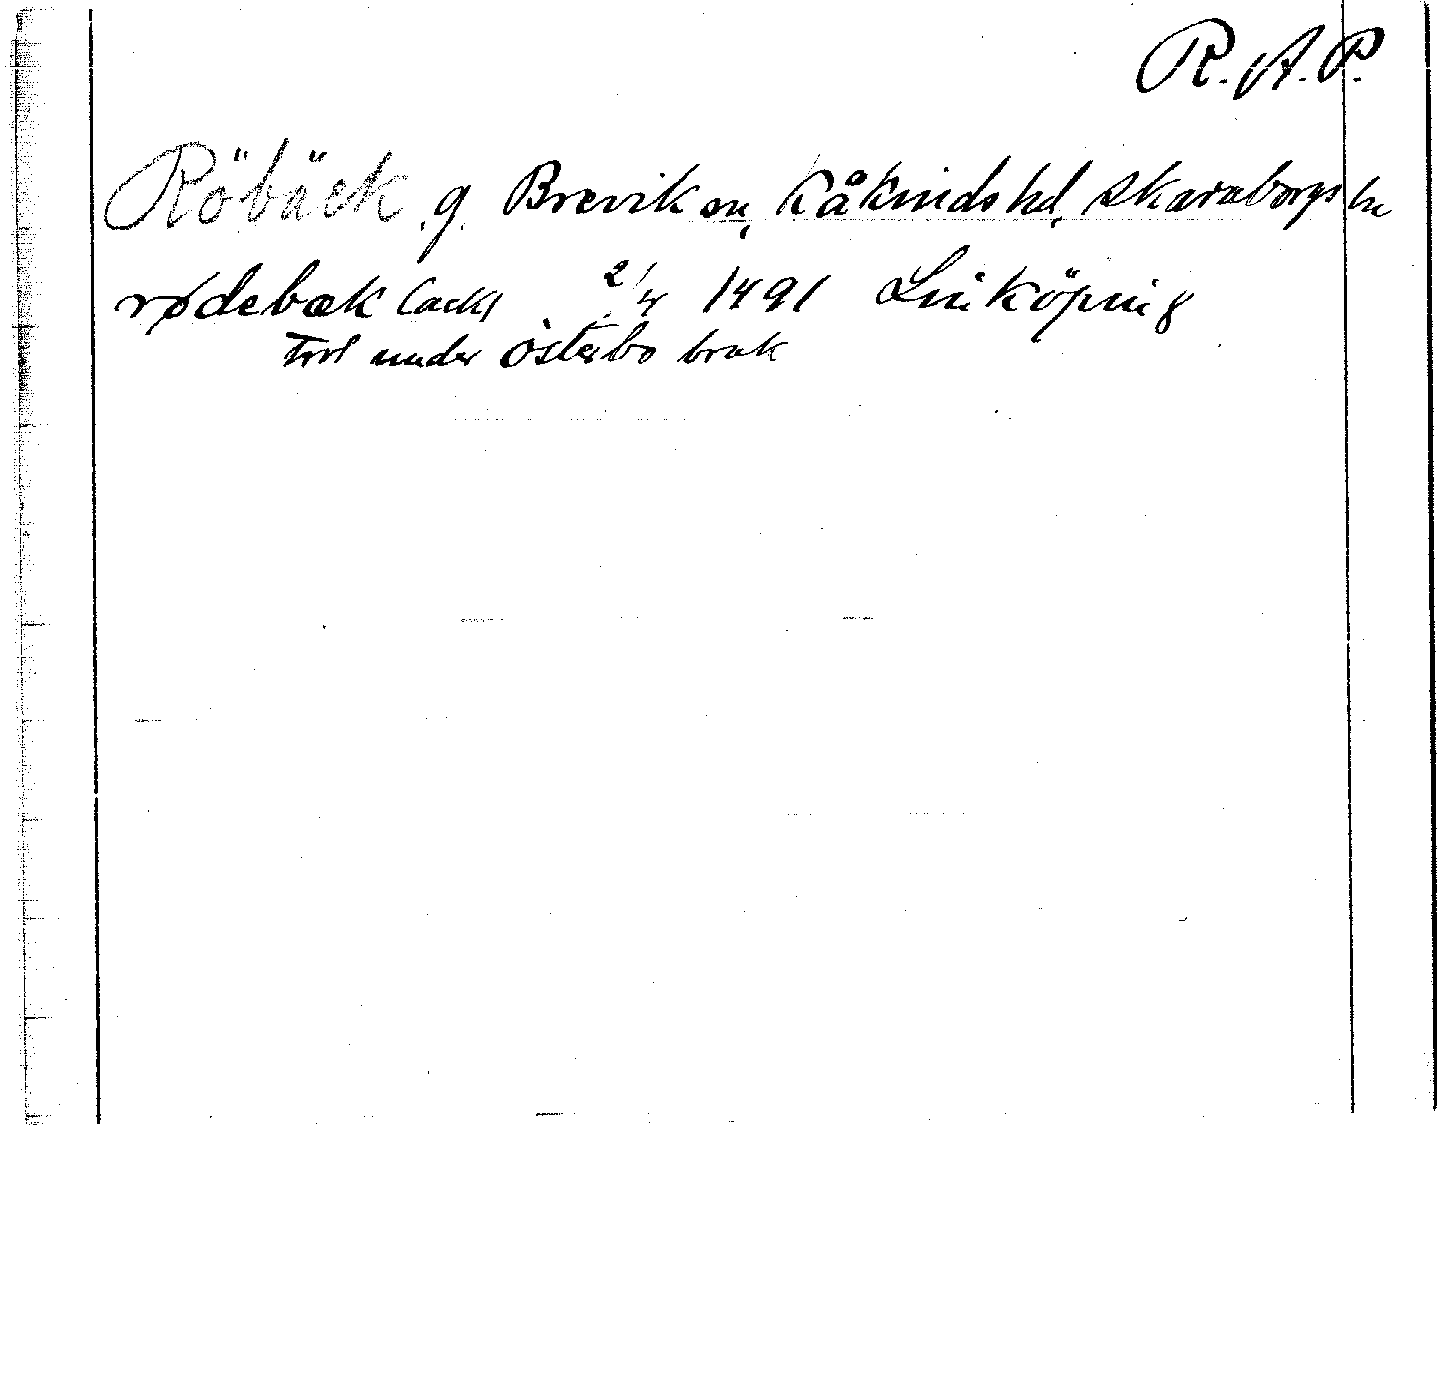 R.A.P.
Röbäck g. Brevik sn, Kåkinds hd, Skaraborgs ln
rødebæk (ack) 2/4 1491 Linköping
under Østerbo bruk